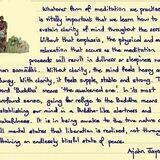 Whatever form of meditation we practise
is vitally important that we learn how to
sustain clarity of mind throughout the session
Without that emphasis, the physical and mental
relaxation that occurs as the meditation
proceeds will result in dullness or sleepiness rather
than samadhi. Without clarity, the mind feels heavy and
With clarity, it feels supple, bright and strong. The
'Buddha' means 'the awakened one'. In its most
sense, going for refuge to the Buddha means
establishing our mind in a 'Buddha' like alertness and
wakefulness. It is in being awake to the true nature
mental states that liberation is realised, not through
an endlessly blissful state of peace.
Ajahn